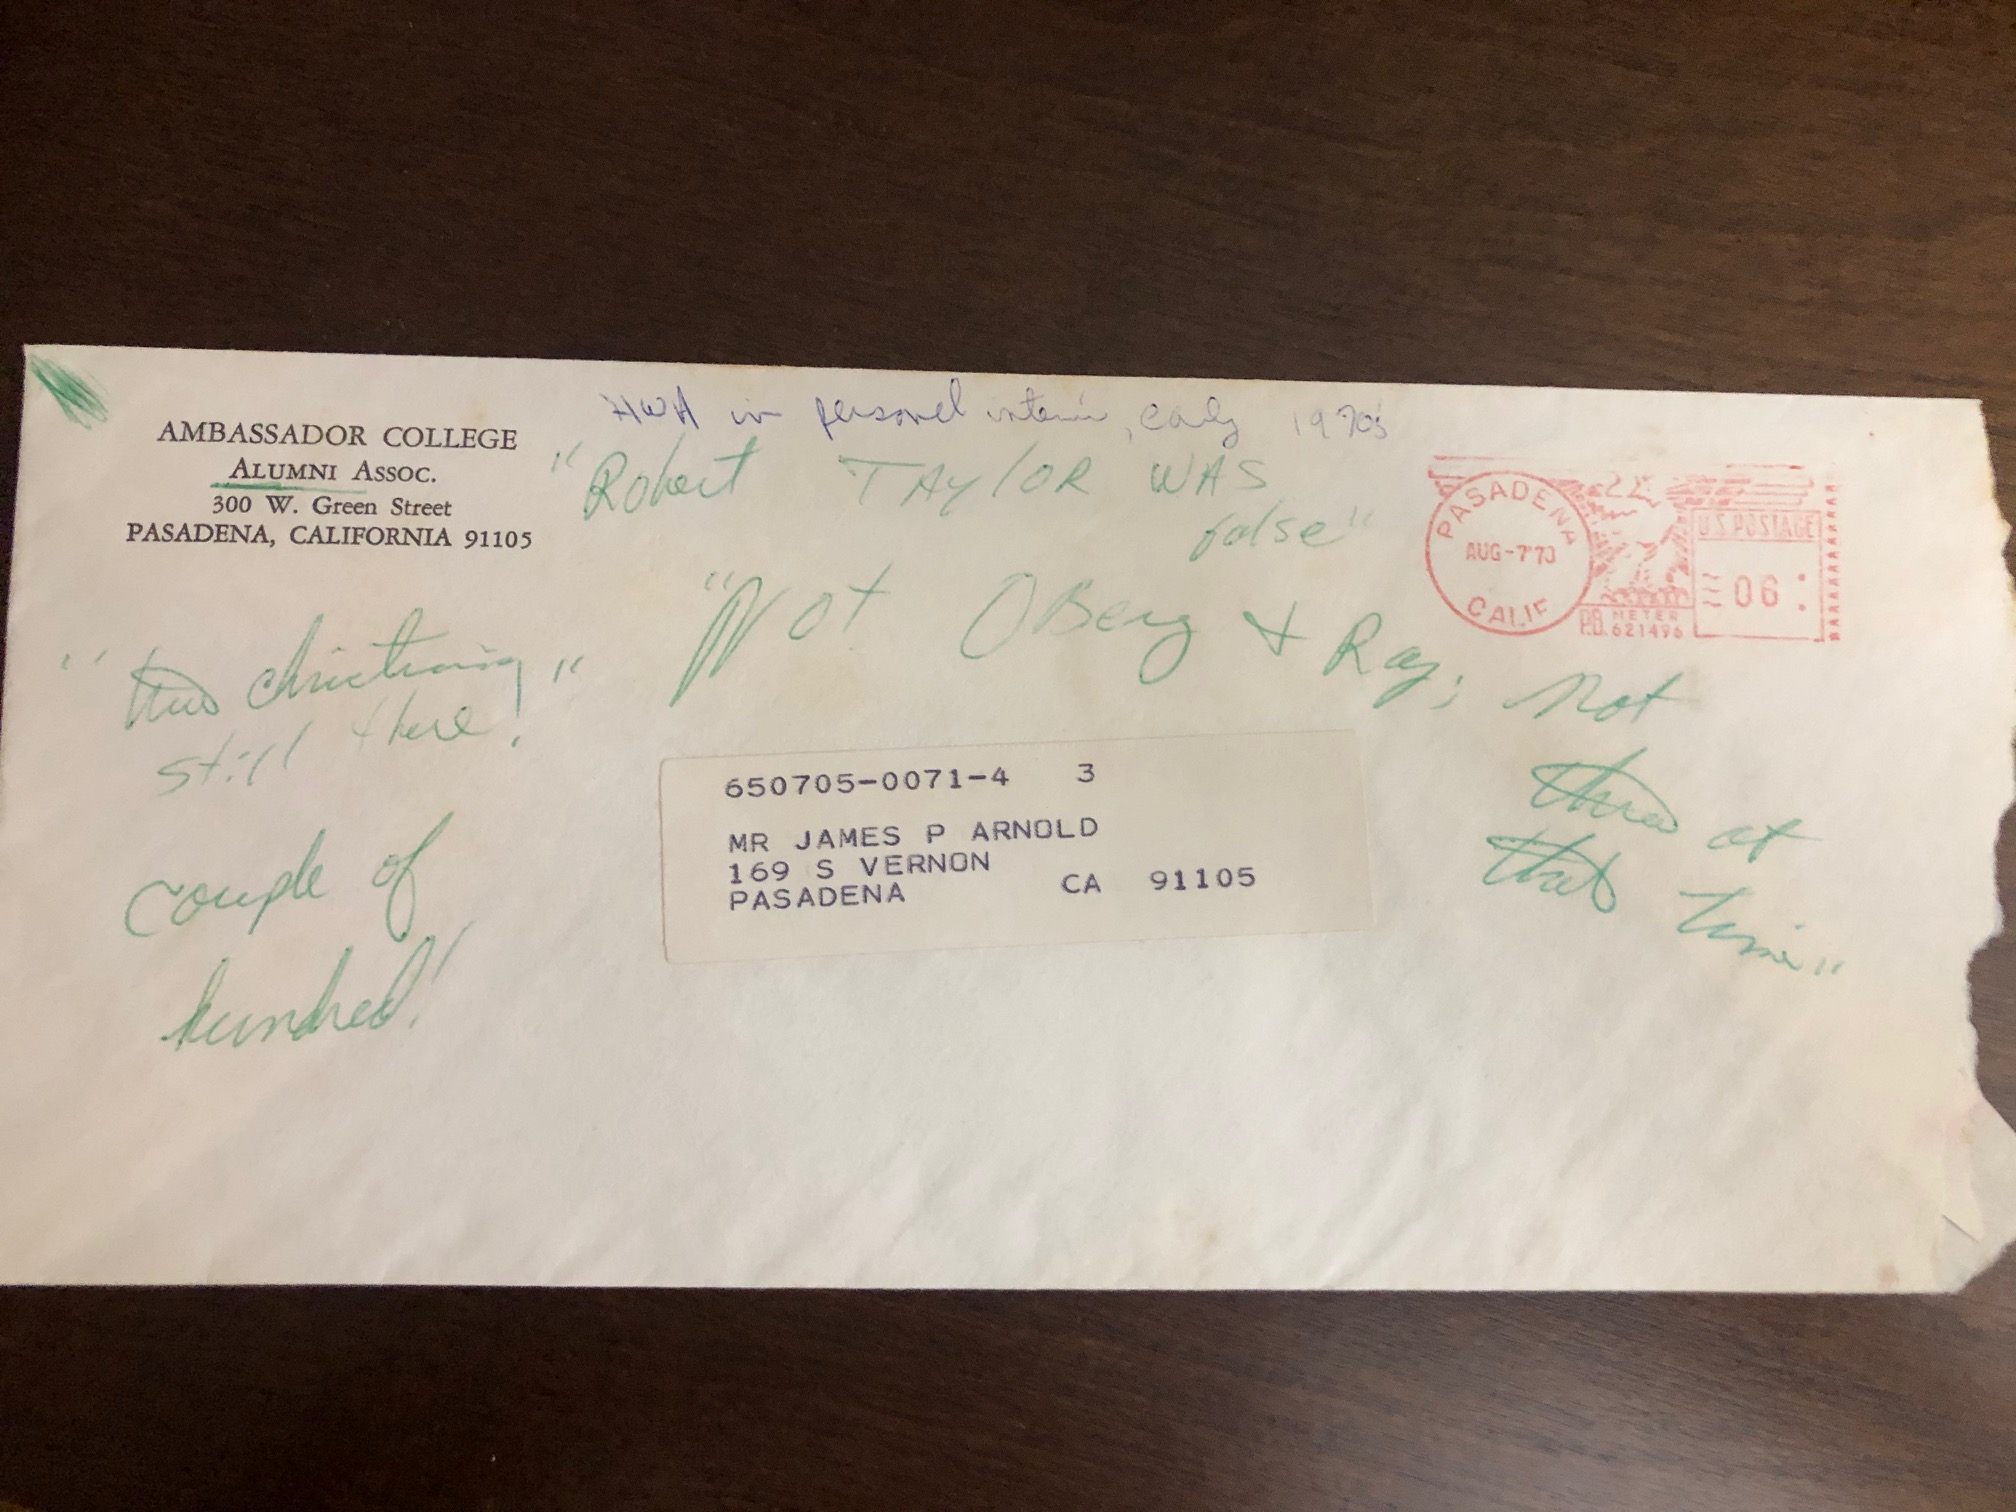 AMBASSADOR COLLEGE
ALUMNI ASSOC.
300 W. Green Street
PASADENA, CALIFORNIA 91105
HWA in personel interview, early 1970s
"Robert TAYLOR WAS
false"
"Not OBerg & Ray; not
there at
that time"
christening"
still there!
couple of
hundred!
PASADENA
AUG-7'70
CALIF
U.S. POSTAGE
06
P.B. METER
621496
650705-0071-4 3
MR JAMES P ARNOLD
169 S VERNON
PASADENA CA 91105